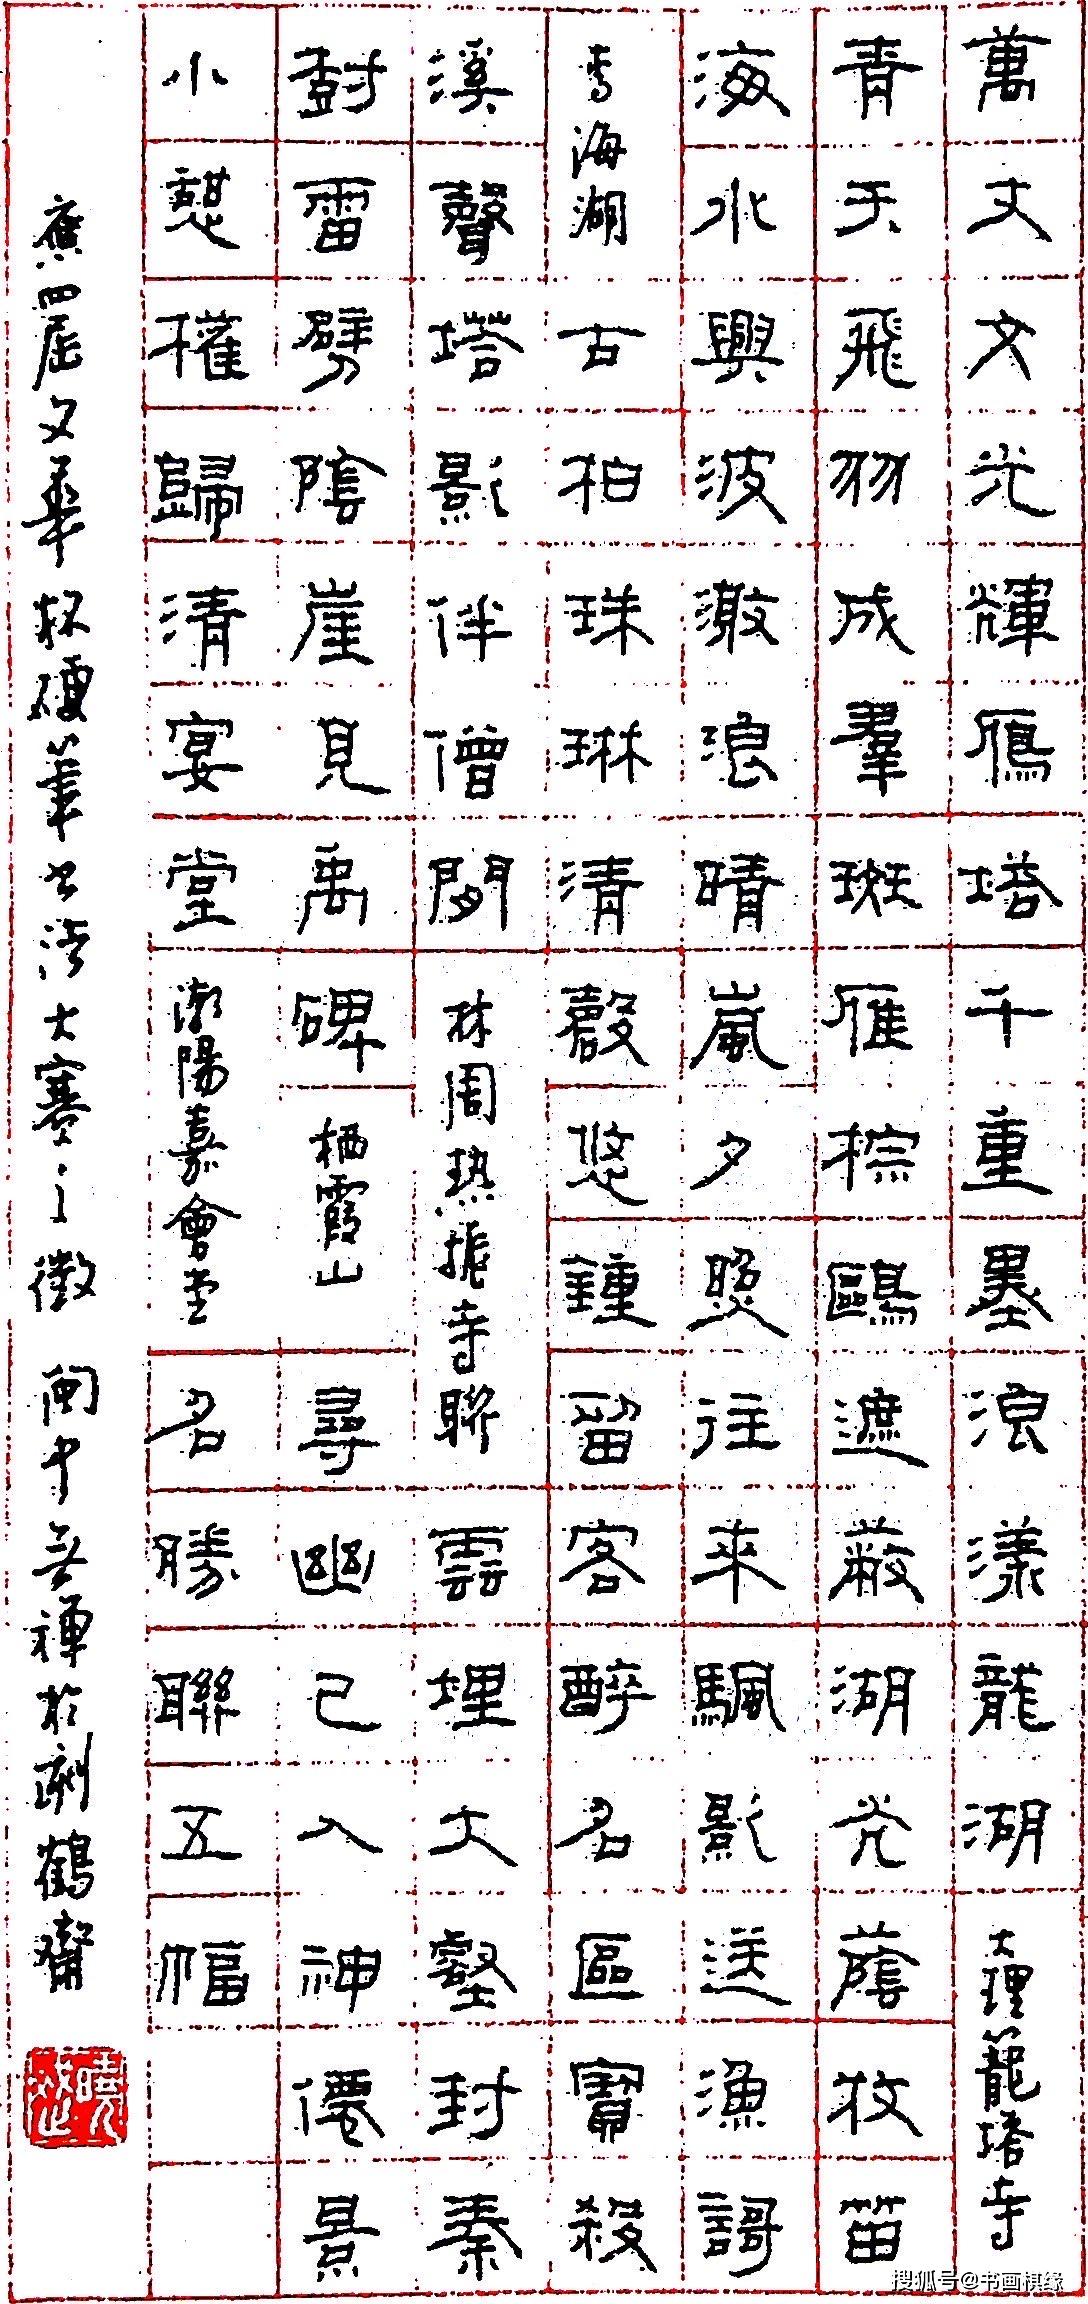 萬丈文光輝鴈塔千重墨浪漾龍湖 大理龍塔寺
青天飛羽成羣斑雁棕鷗遮蔽湖光蔭牧笛
海水興波激浪晴嵐夕照往來颿影送漁謌
青海湖 古柏珠琳清磬悠鐘留客醉名區寶殿
溪聲塔影伴僧閒 林周热振寺聯 雲埋大壑封秦
尌雷劈陰崖見禹碑 栖霞山 尋幽已入神僊景
小憇權歸清宴堂 潮陽嘉會堂 名勝聯五幅
應四屆文華杯硬筆書法大賽之徵 閩中無禪於鶴齋
搜狐号@书画棋缘